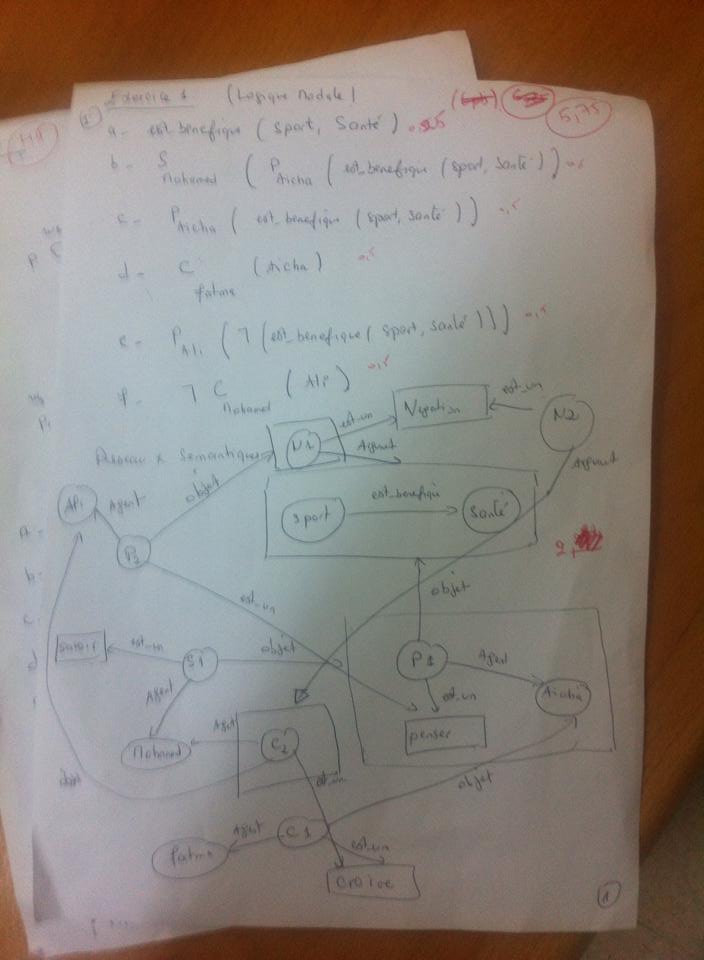 1) Exercice 1 (Logique modale) 5,75
a- est_benefique (Sport, Santé)
b- S Mohamed (P Aicha (est_benefique (sport, santé))) 0,5
c- P Aicha (est_benefique (sport, santé)) 0,5
d- C fatma (Aicha) 0,5
e- P Ali (7 (est_benefique (sport, santé))) 0,5
f- 7 C Mohamed (Ali) 0,5
Réseaux Sémantiques
N1 est_un Negation est_un N2
Argument
Ali Agent objet
Sport est_benefique Santé
P2
est_un objet
Savoir est_un S1 objet P1 Agent Aicha
Agent est_un
Mohamed Agent C2 penser
objet est_un objet
fatma Agent C1 est_un
croire
1